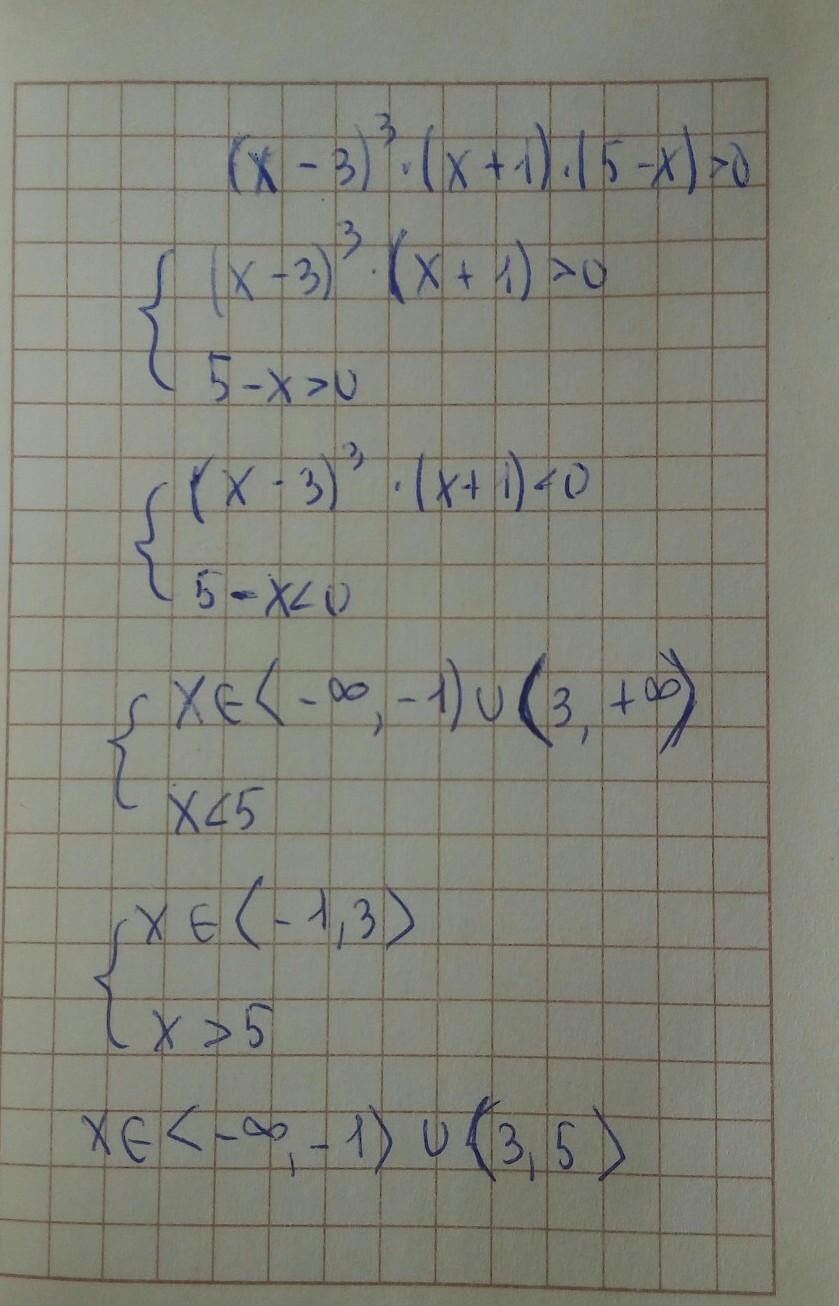 (x - 3)³ · (x + 1) · (5 - x) > 0
{ (x - 3)³ · (x + 1) > 0
5 - x > 0
{ (x - 3)³ · (x + 1) < 0
5 - x < 0
{ x ∈ (-∞, -1) ∪ (3, +∞)
x < 5
{ x ∈ (-1, 3)
x > 5
x ∈ (-∞, -1) ∪ (3, 5)